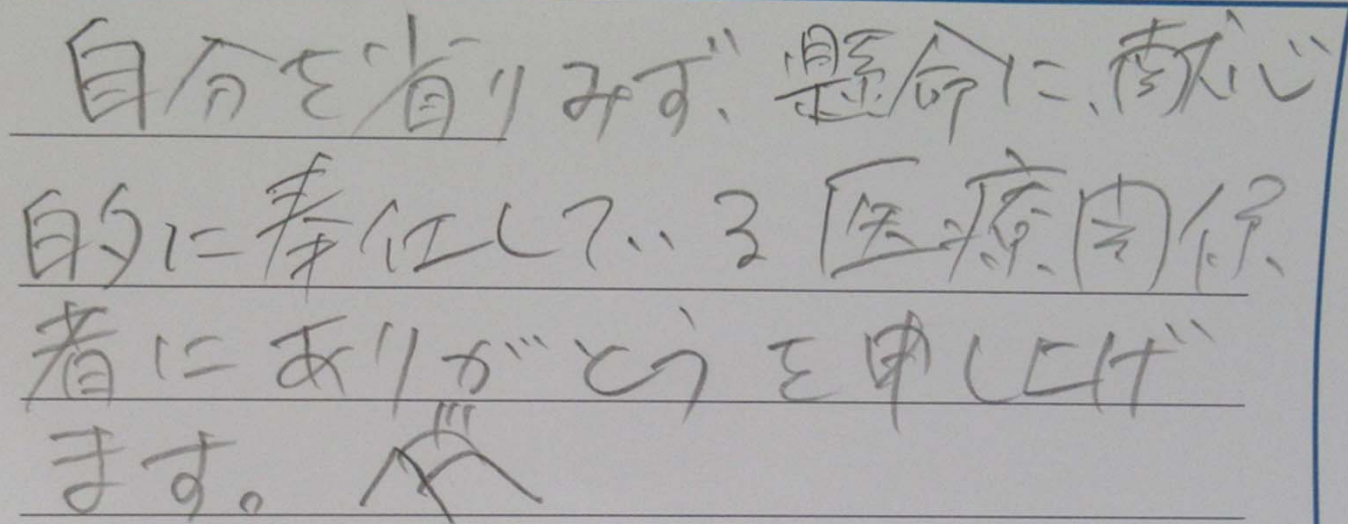 自分を省りみず、懸命に、献心
的に奉仕している医療関係
者にありがとうを申し上げ
ます。